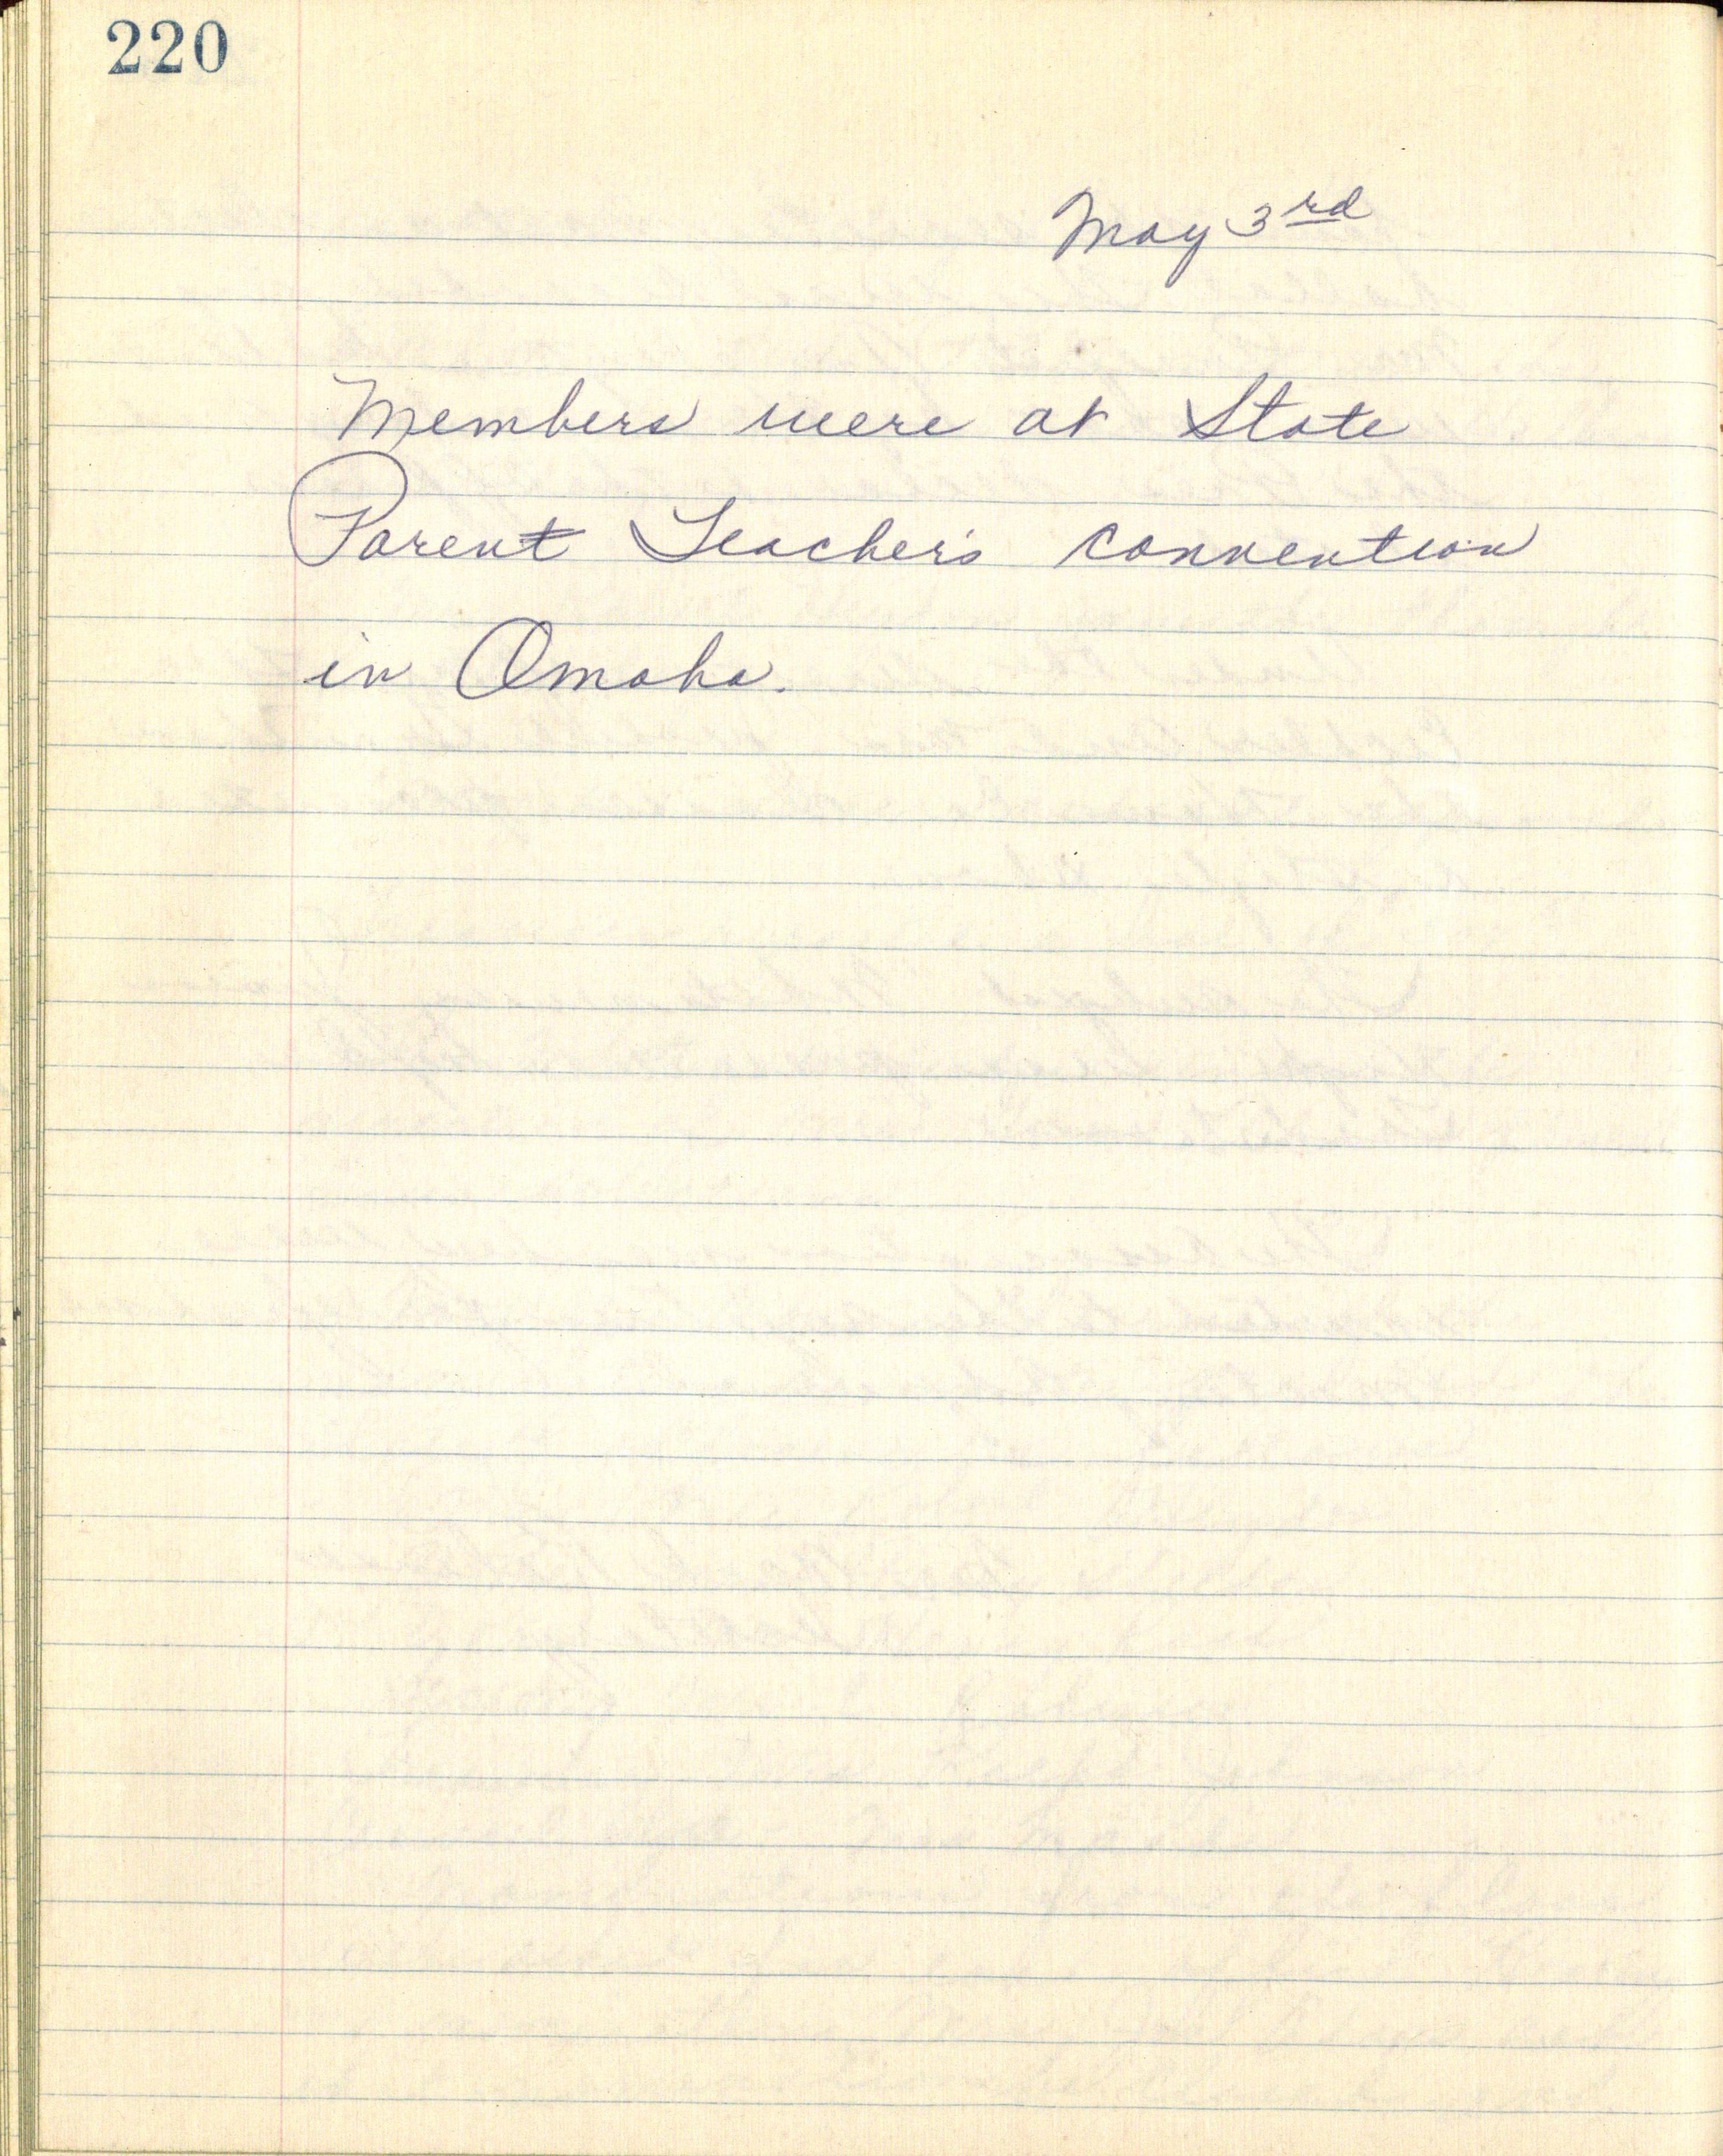 220
May 3rd
Members were at State
Parent Teacher's convention
in Omaha.